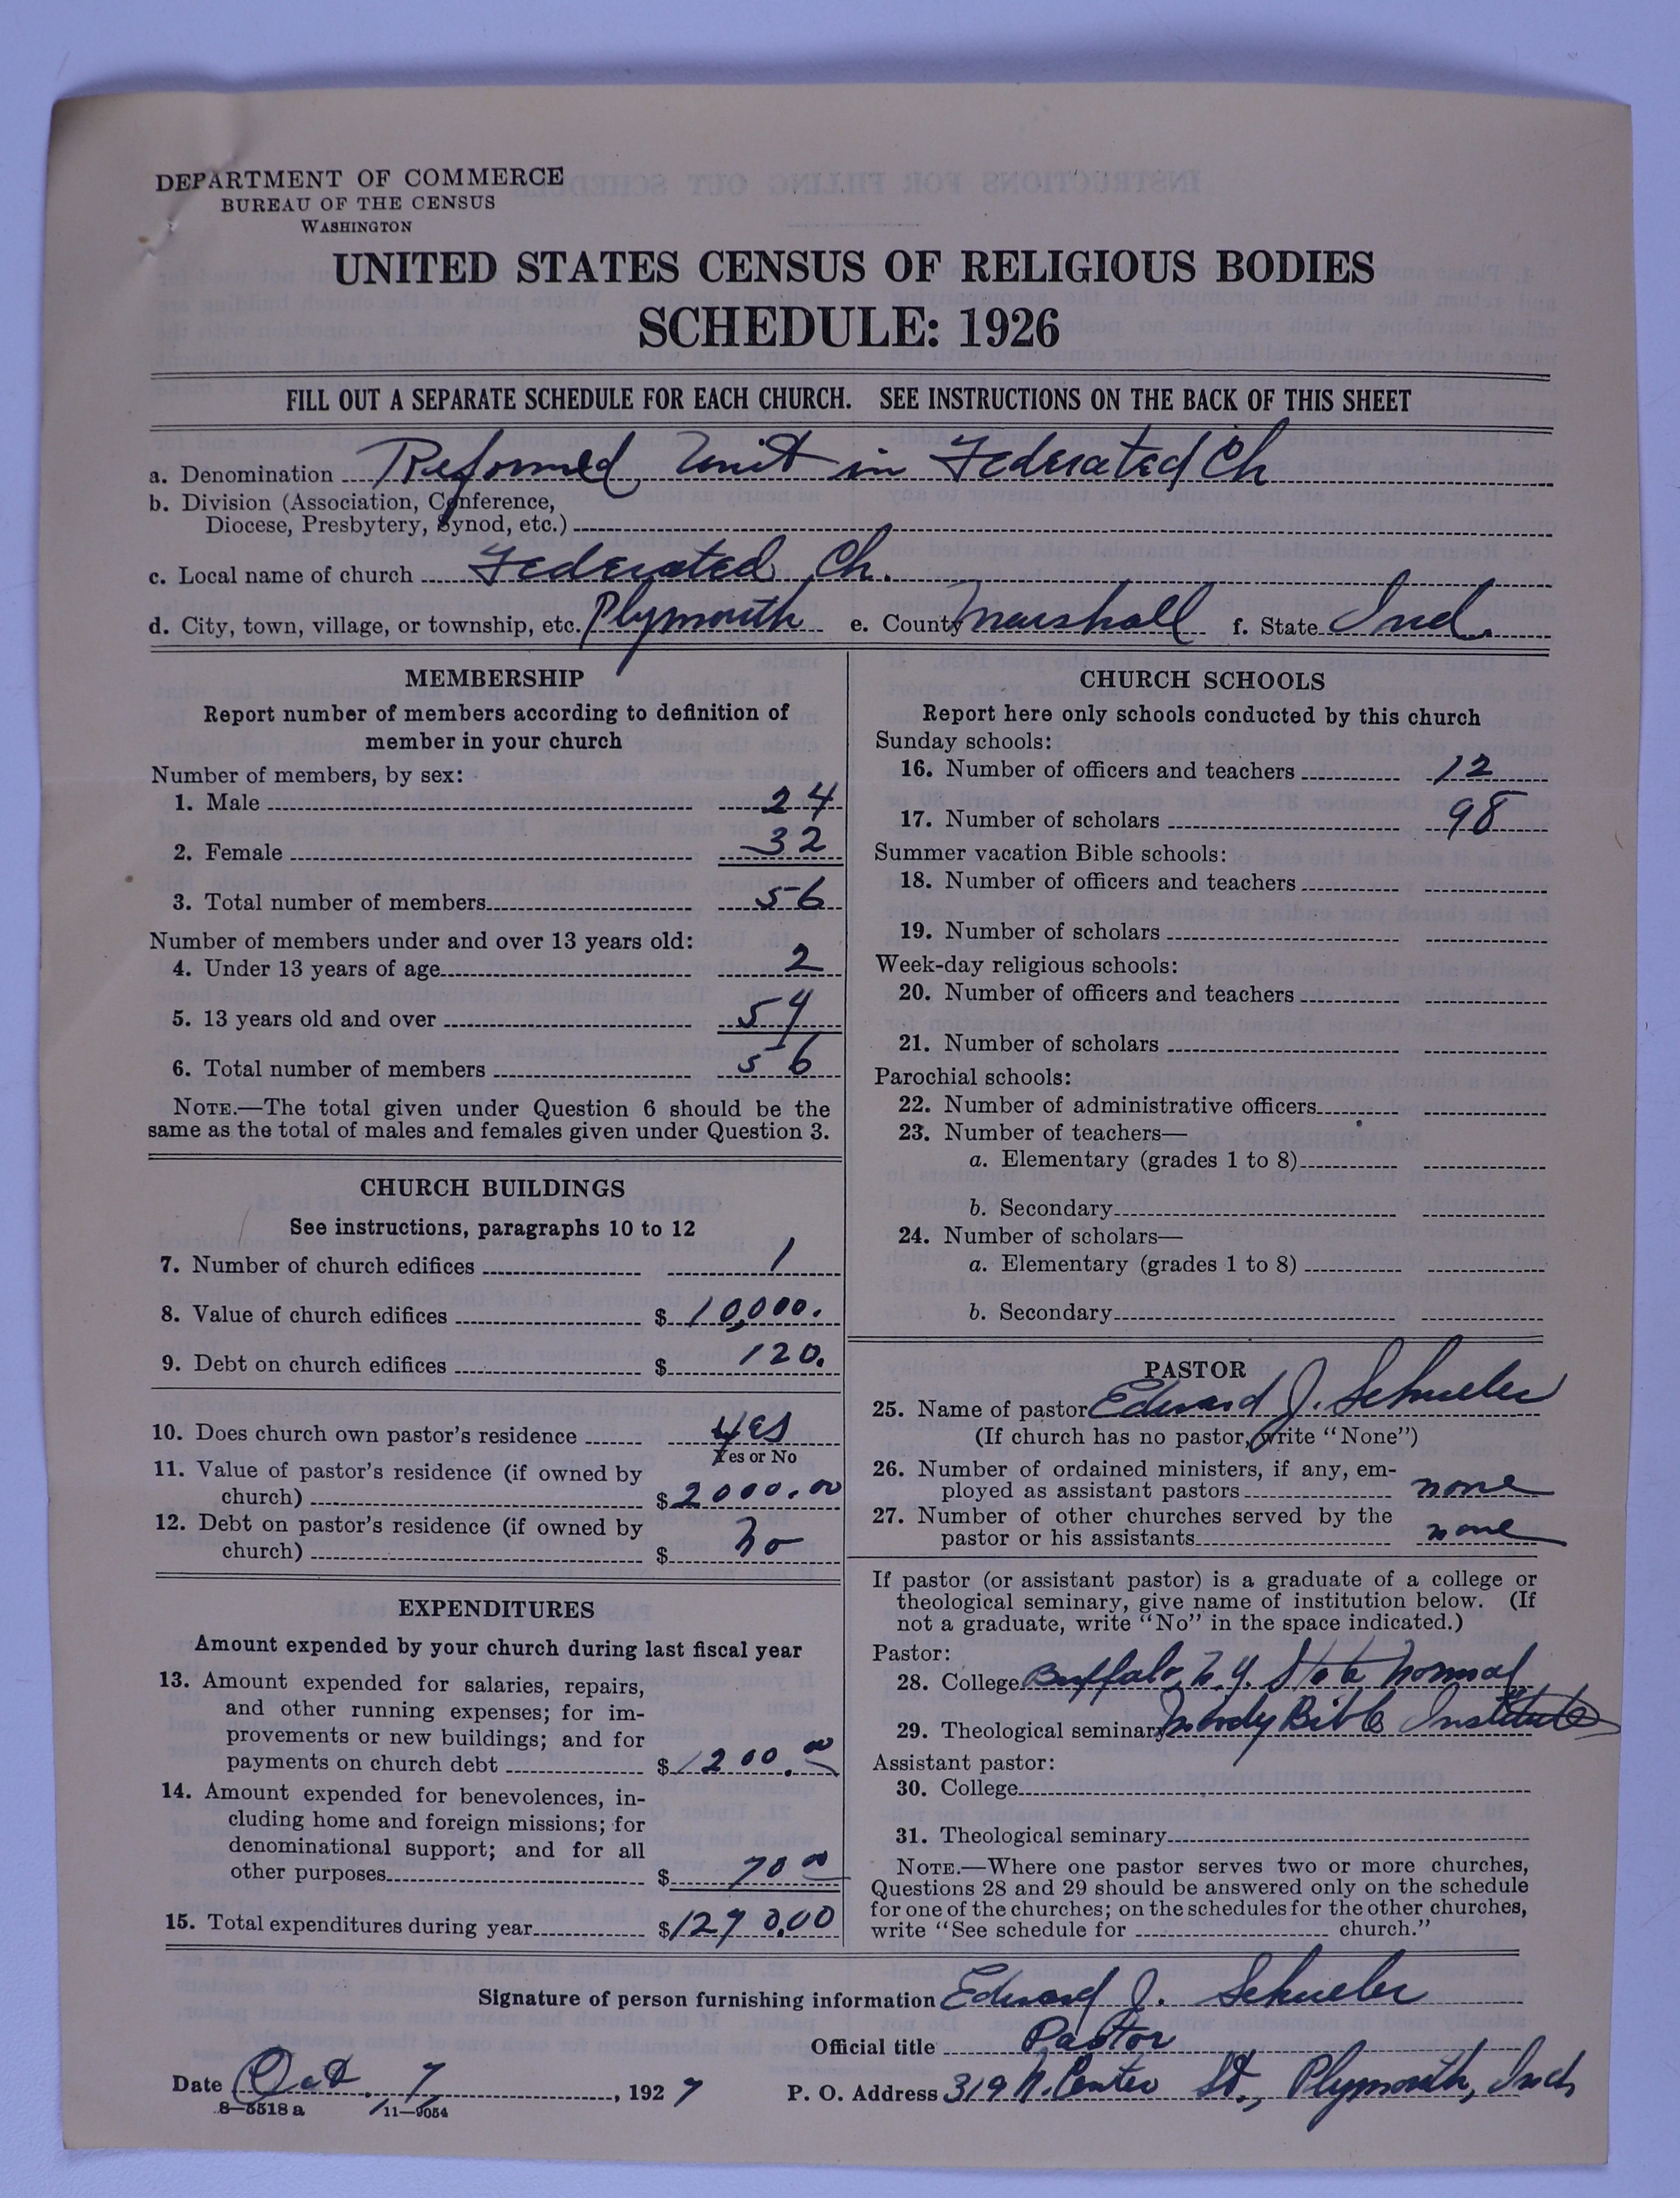 DEPARTMENT OF COMMERCE
BUREAU OF THE CENSUS
WASHINGTON
UNITED STATES CENSUS OF RELIGIOUS BODIES
SCHEDULE: 1926
FILL OUT A SEPARATE SCHEDULE FOR EACH CHURCH. SEE INSTRUCTIONS ON THE BACK OF THIS SHEET
a. Denomination Reformed Unit in Federated Ch
b. Division (Association, Conference,
Diocese, Presbytery, Synod, etc.)
c. Local name of church Federated Ch.
d. City, town, village, or township, etc. Plymouth e. County Marshall f. State Ind.
MEMBERSHIP
Report number of members according to definition of
member in your church
Number of members, by sex:
1. Male 24
2. Female 32
3. Total number of members 56
Number of members under and over 13 years old:
4. Under 13 years of age 2
5. 13 years old and over 54
6. Total number of members 56
NOTE.—The total given under Question 6 should be the
same as the total of males and females given under Question 3.
CHURCH BUILDINGS
See instructions, paragraphs 10 to 12
7. Number of church edifices 1
8. Value of church edifices $ 10,000.
9. Debt on church edifices $ 120.
10. Does church own pastor's residence yes
Yes or No
11. Value of pastor's residence (if owned by
church) $ 2000.00
12. Debt on pastor's residence (if owned by
church) $ no
EXPENDITURES
Amount expended by your church during last fiscal year
13. Amount expended for salaries, repairs,
and other running expenses; for im-
provements or new buildings; and for
payments on church debt $ 1200.00
14. Amount expended for benevolences, in-
cluding home and foreign missions; for
denominational support; and for all
other purposes $ 70 00
15. Total expenditures during year $ 1270.00
CHURCH SCHOOLS
Report here only schools conducted by this church
Sunday schools:
16. Number of officers and teachers 12
17. Number of scholars 98
Summer vacation Bible schools:
18. Number of officers and teachers
19. Number of scholars
Week-day religious schools:
20. Number of officers and teachers
21. Number of scholars
Parochial schools:
22. Number of administrative officers
23. Number of teachers—
a. Elementary (grades 1 to 8)
b. Secondary
24. Number of scholars—
a. Elementary (grades 1 to 8)
b. Secondary
PASTOR
25. Name of pastor Edward J. Schueler
(If church has no pastor, write "None")
26. Number of ordained ministers, if any, em-
ployed as assistant pastors none
27. Number of other churches served by the
pastor or his assistants none
If pastor (or assistant pastor) is a graduate of a college or
theological seminary, give name of institution below. (If
not a graduate, write "No" in the space indicated.)
Pastor:
28. College Buffalo, N.Y. State Normal
29. Theological seminary Moody Bible Institute
Assistant pastor:
30. College
31. Theological seminary
NOTE.—Where one pastor serves two or more churches,
Questions 28 and 29 should be answered only on the schedule
for one of the churches; on the schedules for the other churches,
write "See schedule for church."
Signature of person furnishing information Edward J. Schueler
Official title Pastor
Date Oct. 7, 1927 P. O. Address 319 N. Center St., Plymouth, Ind.
8—5518 a 11—9054